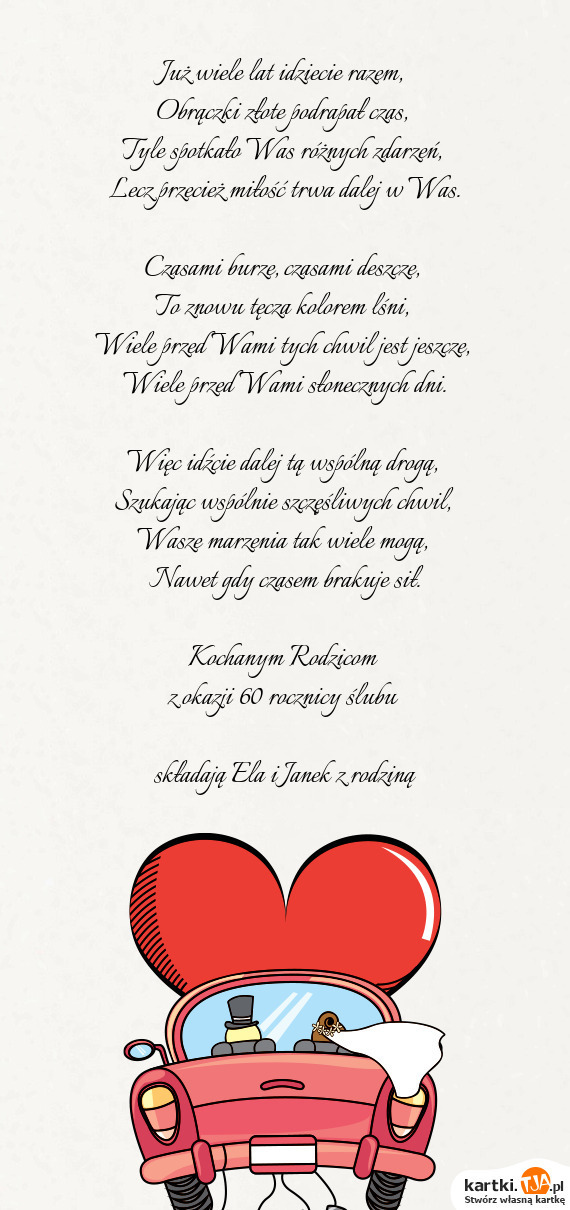 Już wiele lat idziecie razem,
Obrączki złote podrapał czas,
Tyle spotkało Was różnych zdarzeń,
Lecz przecież miłość trwa dalej w Was.
Czasami burze, czasami deszcze,
To znowu tęcza kolorem lśni,
Wiele przed Wami tych chwil jest jeszcze,
Wiele przed Wami słonecznych dni.
Więc idźcie dalej tą wspólną drogą,
Szukając wspólnie szczęśliwych chwil,
Wasze marzenia tak wiele mogą,
Nawet gdy czasem brakuje sił.
Kochanym Rodzicom
z okazji 60 rocznicy ślubu
składają Ela i Janek z rodziną
kartki.TJA.pl
Stwórz własną kartkę